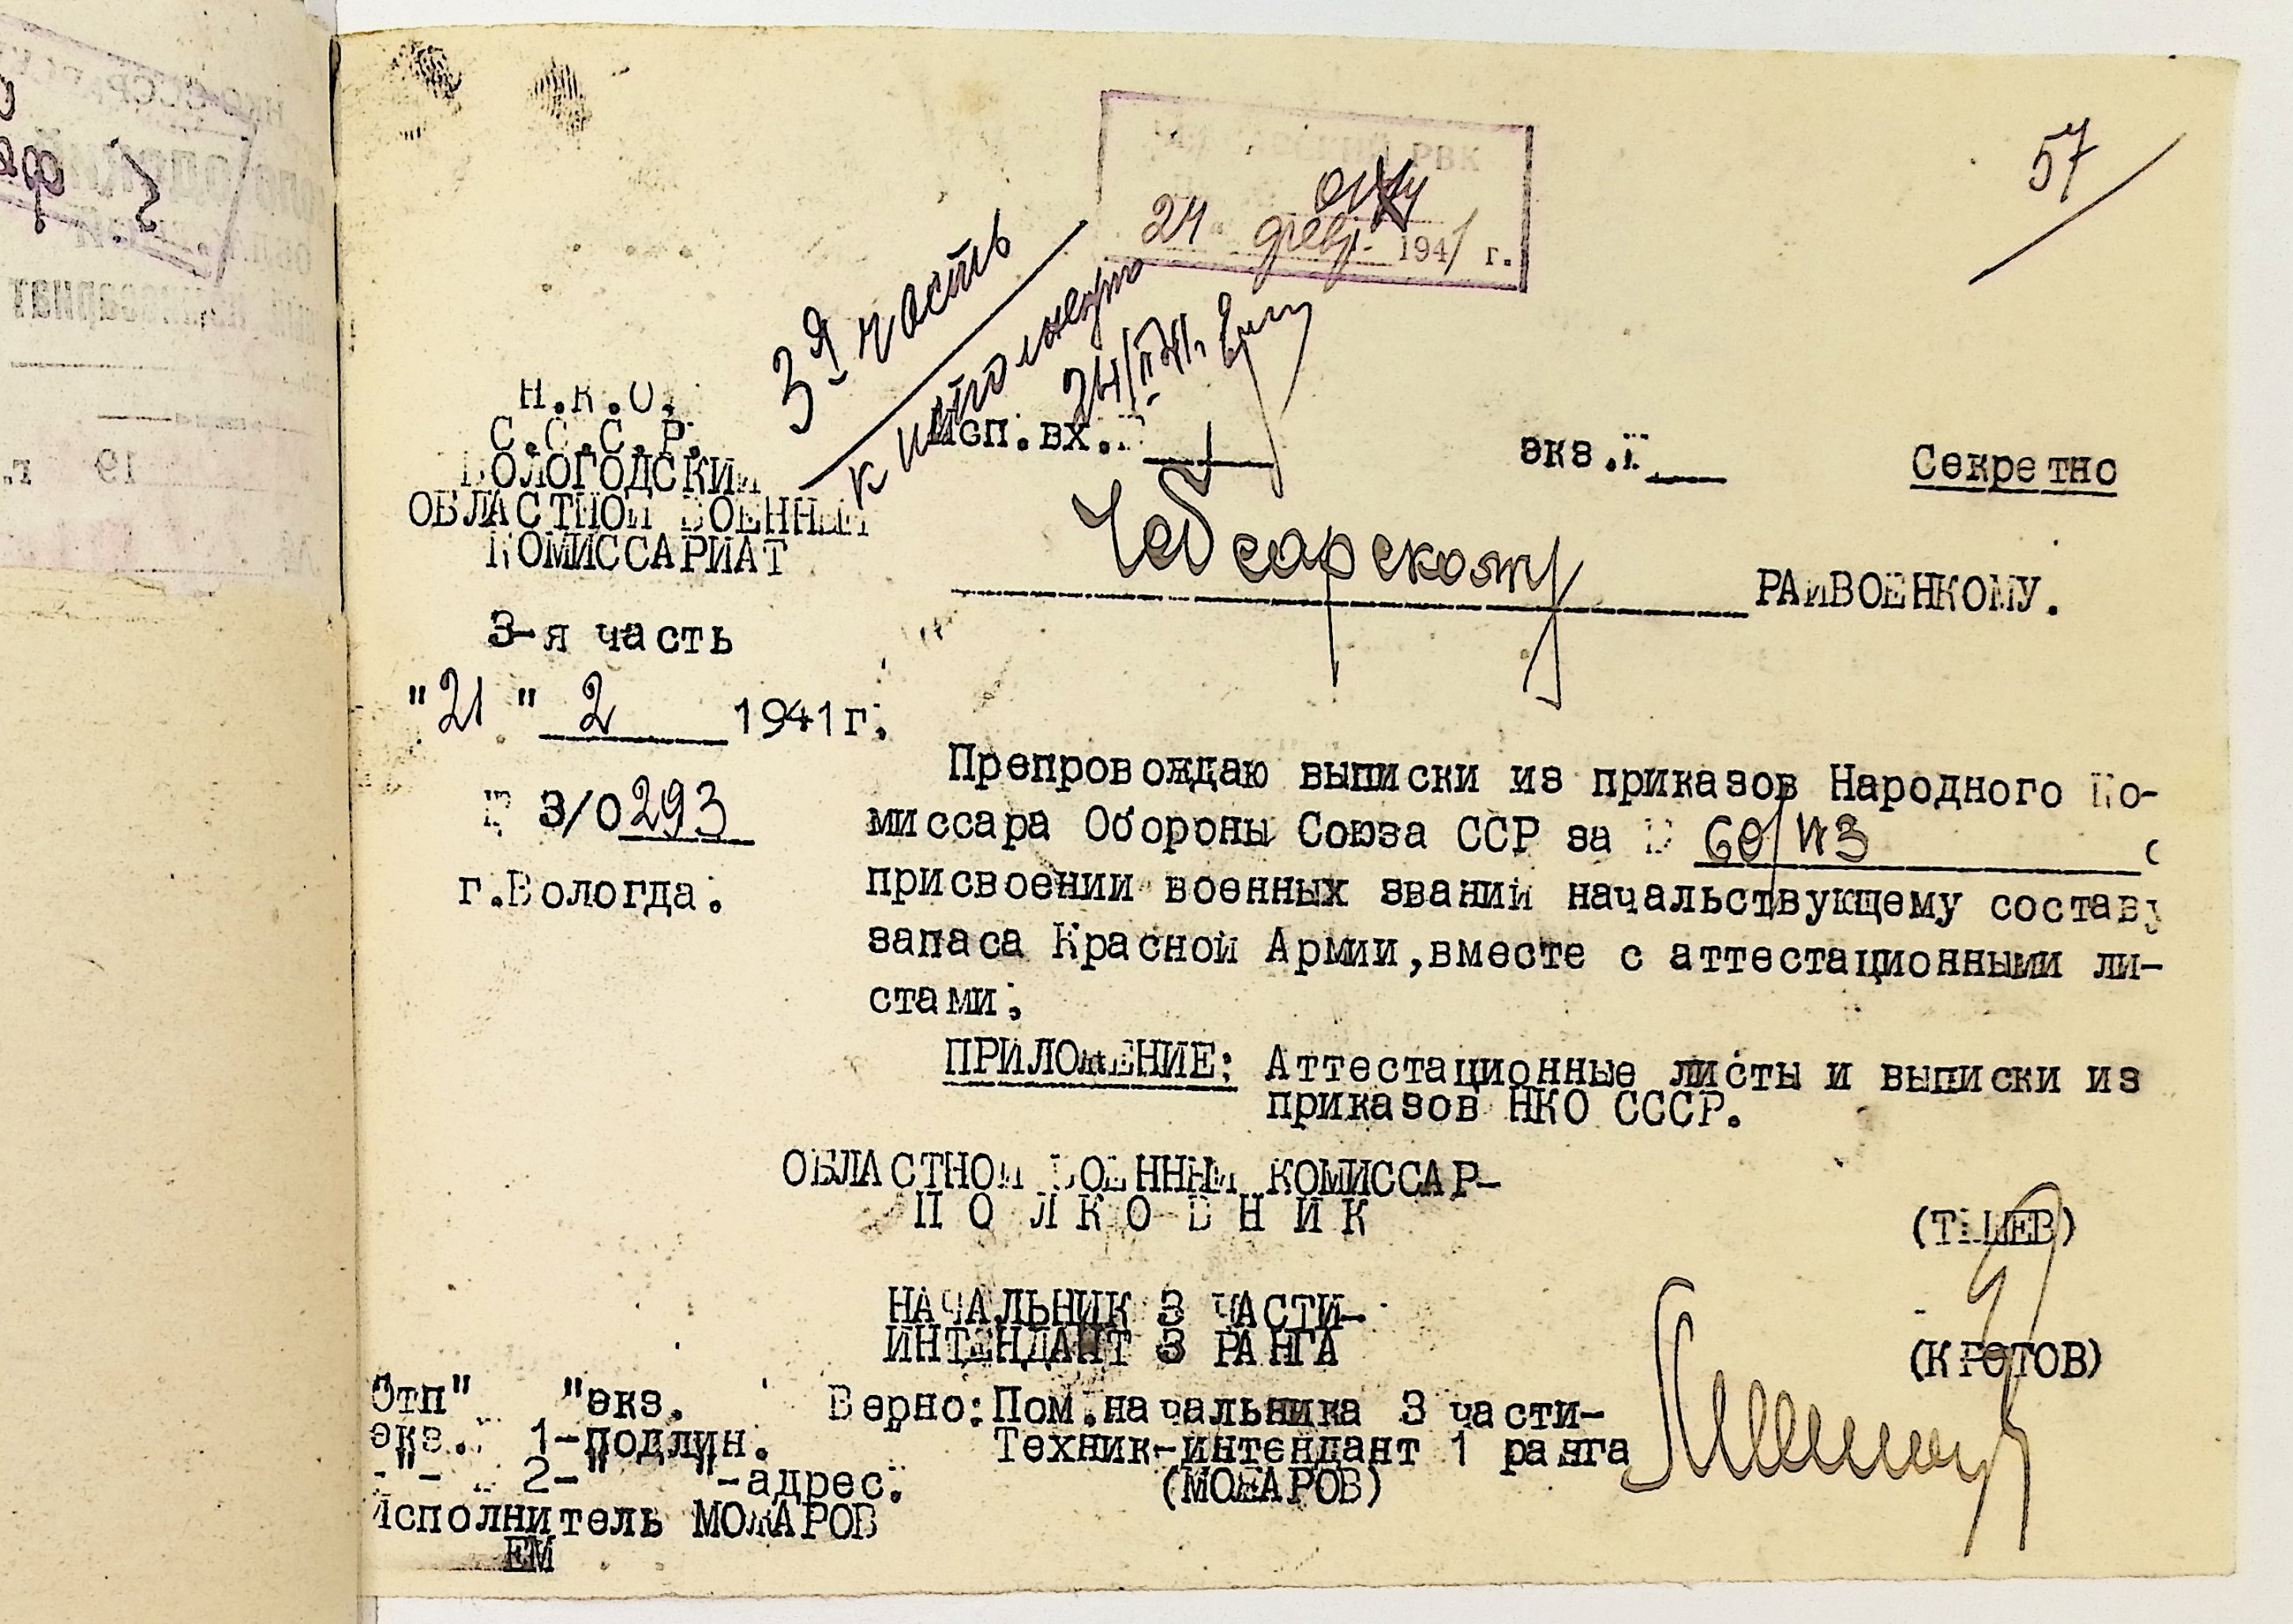 57
РВК
24 февр. 1941 г.
3я часть
к исполнению
24/II 41г.
Н.К.О.
С.С.С.Р.
ВОЛОГОДСКИЙ
ОБЛАСТНОЙ ВОЕННЫЙ
КОМИССАРИАТ
3-я часть
"21" 2 1941г.
№ 3/0293
г.Вологда.
исп.вх.№ экз.№ Секретно
Чебсарскому РАЙВОЕНКОМУ.
Препровождаю выписки из приказов Народного Ко-
миссара Обороны Союза ССР за №
присвоении военных званий начальствующему составу
запаса Красной Армии,вместе с аттестационными ли-
стами.
ПРИЛОЖЕНИЕ: Аттестационные листы и выписки из
приказов НКО СССР.
ОБЛАСТНОЙ ВОЕННЫЙ КОМИССАР-
ПОЛКОВНИК
НАЧАЛЬНИК 3 ЧАСТИ-
ИНТЕНДАНТ 3 РАНГА
(КРОТОВ)
Верно: Пом.начальника 3 части-
Техник-интендант 1 ранга
(МОЖАРОВ)
Отп" "экз.
экз.№ 1-подлин.
-"- № 2-" "-адрес.
Исполнитель МОЖАРОВ
ЕМ